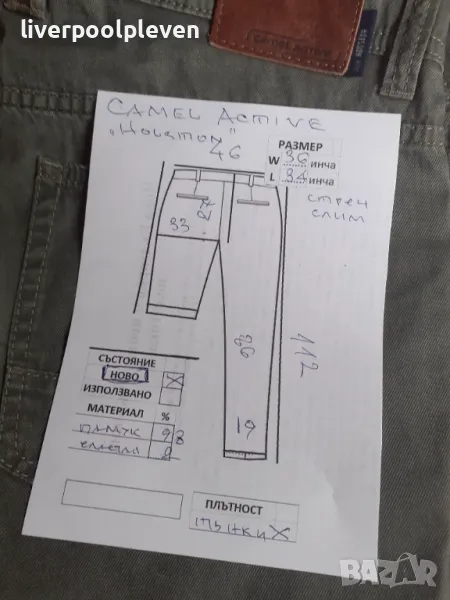 liverpoolpleven
camel active
CAMEL ACTIVE
„Houston"
46
РАЗМЕР
W 36 инча
L 34 инча
стреч
слим
33
86
112
19
СЪСТОЯНИЕ
НОВО X
ИЗПОЛЗВАНО
МАТЕРИАЛ %
ПАМУК 98
еластан
ПЛЪТНОСТ
ТЪНКИ X
BAZAR